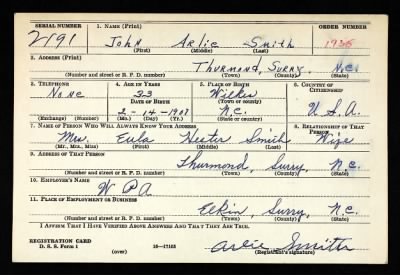 SERIAL NUMBER 1. NAME (Print) ORDER NUMBER
2191 John Arlie Smith 1936
(First) (Middle) (Last)
2. ADDRESS (Print)
Thurmond, Surry, N.C.
(Number and street or R. F. D. number) (Town) (County) (State)
3. TELEPHONE 4. AGE IN YEARS 5. PLACE OF BIRTH 6. COUNTRY OF CITIZENSHIP
None 33 Wilkes
DATE OF BIRTH (Town or county)
2-14-1907 N.C. U.S.A.
(Exchange) (Number) (Mo.) (Day) (Yr.) (State or country)
7. NAME OF PERSON WHO WILL ALWAYS KNOW YOUR ADDRESS 8. RELATIONSHIP OF THAT PERSON
Mrs. Eula Hester Smith Wife
(Mr., Mrs., Miss) (First) (Middle) (Last)
9. ADDRESS OF THAT PERSON
Thurmond, Surry, N.C.
(Number and street or R. F. D. number) (Town) (County) (State)
10. EMPLOYER'S NAME
W PA
11. PLACE OF EMPLOYMENT OR BUSINESS
Elkin, Surry, N.C.
(Number and street or R. F. D. number) (Town) (County) (State)
I AFFIRM THAT I HAVE VERIFIED ABOVE ANSWERS AND THAT THEY ARE TRUE.
REGISTRATION CARD
D. S. S. Form 1 16-17105 Arlie Smith
(over) (Registrant's signature)